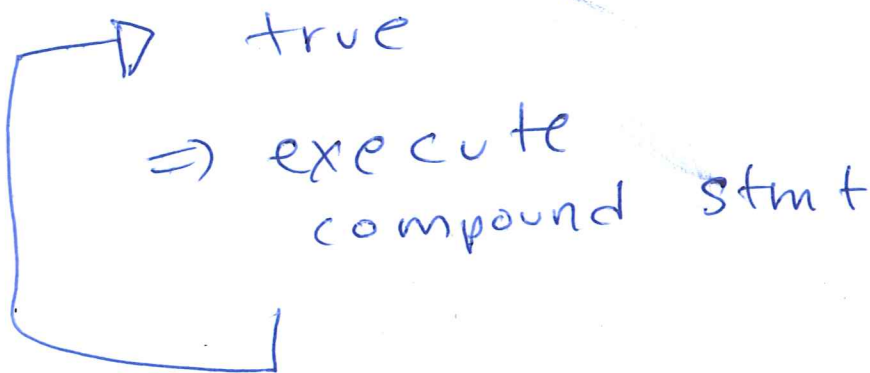 true
⇒ execute
compound stmt